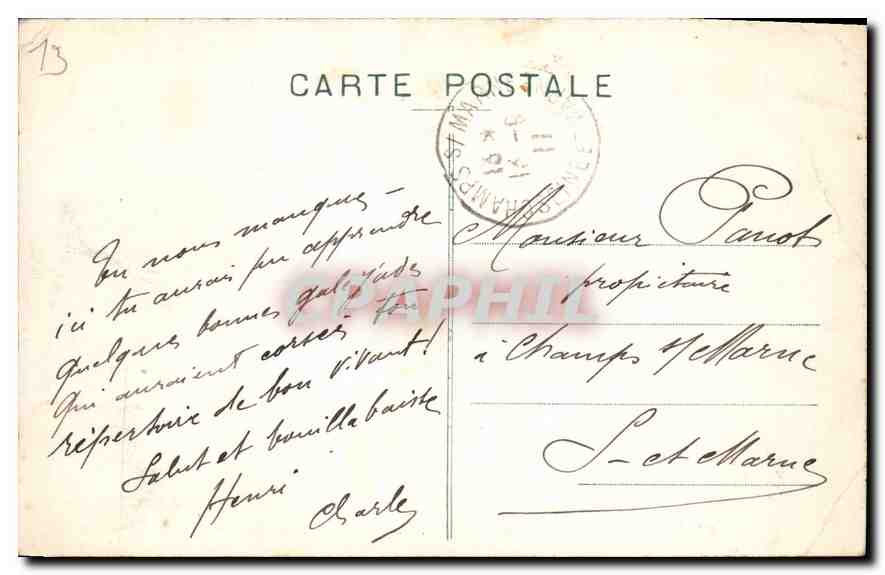 13
CARTE POSTALE
CHAMPS S/ MARNE
16 *
16 - 8
11
Tu nous manques -
ici tu aurais pu apprendre
quelques bonnes galéjades
qui auraient corsé ton
répertoire de bon vivant!
Salut et bouillabaisse
Henri
Charles
Monsieur Panot
propietaire
à Champs s/ Marne
S- et Marne
CPAPHIL